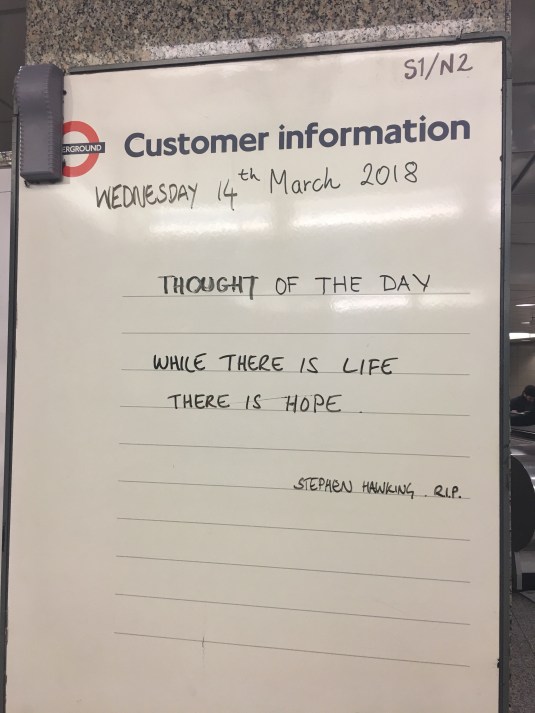 S1/N2
ERGROUND
Customer information
WEDNESDAY 14th March 2018
THOUGHT OF THE DAY
WHILE THERE IS LIFE
THERE IS HOPE.
STEPHEN HAWKING. R.I.P.